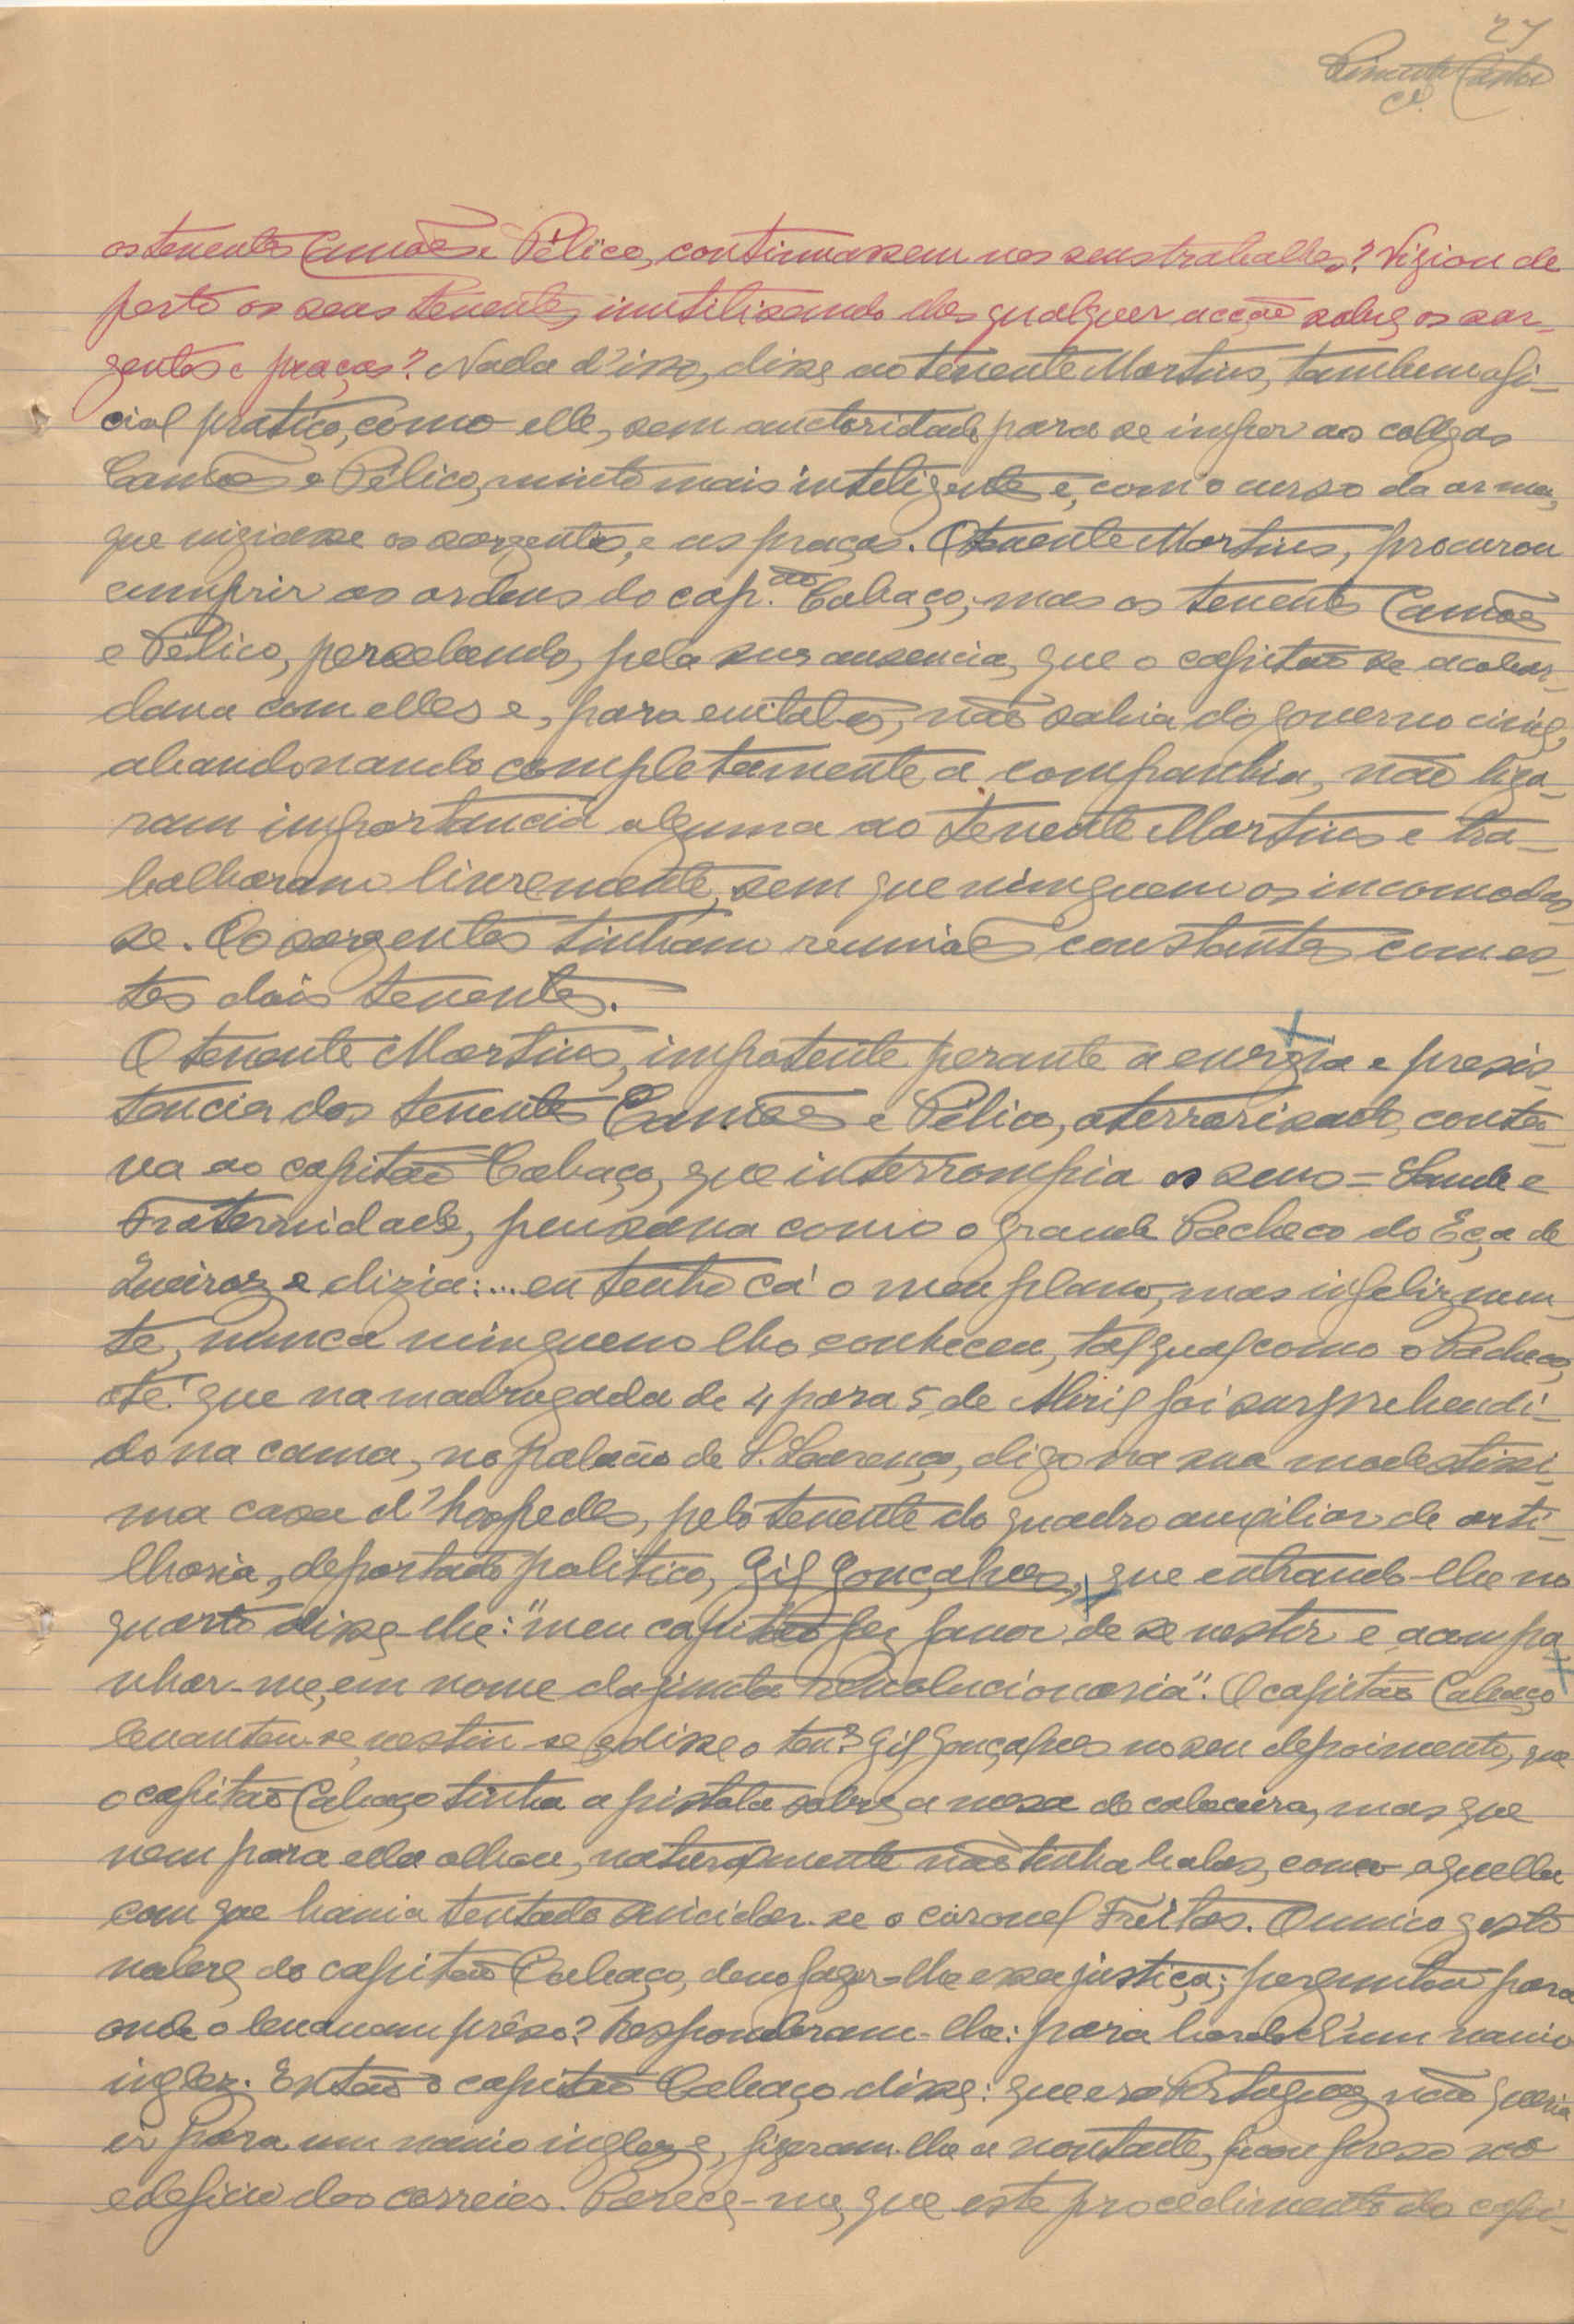 27
Pimenta Castro
Cel.
os tenentes Camões e Pélico, continuassem nos seus trabalhos? Vigiou de
perto os seus tenentes, inutilisando-lhes qualquer acção sobre os sar-
gentos e praças? Nada d'isso, disse ao tenente Martins, tambem ofi-
cial pratico, como elle, sem auctoridade para se impor aos collegas
Camões e Pélico, muito mais inteligentes e, com o curso da arma,
que vigiasse os sargentos, e as praças. O tenente Martins, procurou
cumprir as ordens do cap.ão Cabaço, mas os tenentes Camões
e Pélico, percebendo, pela sua ausencia, que o capitão se acobar-
dava com elles e, para evital-os, não sahia do governo civil,
abandonando completamente a companhia, não liga-
ram importancia alguma ao tenente Martins e tra-
balharam livremente, sem que ninguem os incomodas-
se. Os sargentos tinham reuniões constantes com es-
tes dois tenentes.
O tenente Martins, impotente perante a energia e presis-
tencia dos tenentes Camões e Pélico, aterrorisado, conta-
va ao capitão Cabaço, que interrompia os seus = Saude e
Fraternidade, pensava como o grande Pacheco do Eça de
Queiroz e dizia:... eu tenho cá o meu plano, mas infelizmen-
te, nunca ninguem lho conheceu, tal qual como o Pacheco,
até que na madrugada de 4 para 5, de Abril foi surprehendi-
do na cama, no palacio de S. Lourenço, digo na sua modestissi-
ma casa d'hospedes, pelo tenente do quadro auxiliar de arti-
lharia, deportado politico, Gil Gonçalves, que entrando-lhe no
quarto disse-lhe: "meu capitão faz favor de se vestir e acompa
nhar-me, em nome da junta revolucionaria". O capitão Cabaço
levantou-se, vestiu-se e disse o ten.e Gil Gonçalves no seu depoimento, que
o capitão Cabaço tinha a pistola sobre a mesa de cabeceira, mas que
nem para ella olhou, naturalmente não tinha balas, como aquella
com que havia tentado suicidar-se o coronel Freitas. O unico gesto
nobre do capitão Cabaço, devo fazer-lhe essa justiça; perguntou para
onde o levavam prêso? Responderam-lhe: para bordo d'um navio
inglez. Então o capitão Cabaço disse: que era Portuguez não queria
ir para um navio inglez e, fizeram-lhe a vontade, ficou preso no
edeficio dos correios. Parece-me, que este procedimento do capi-